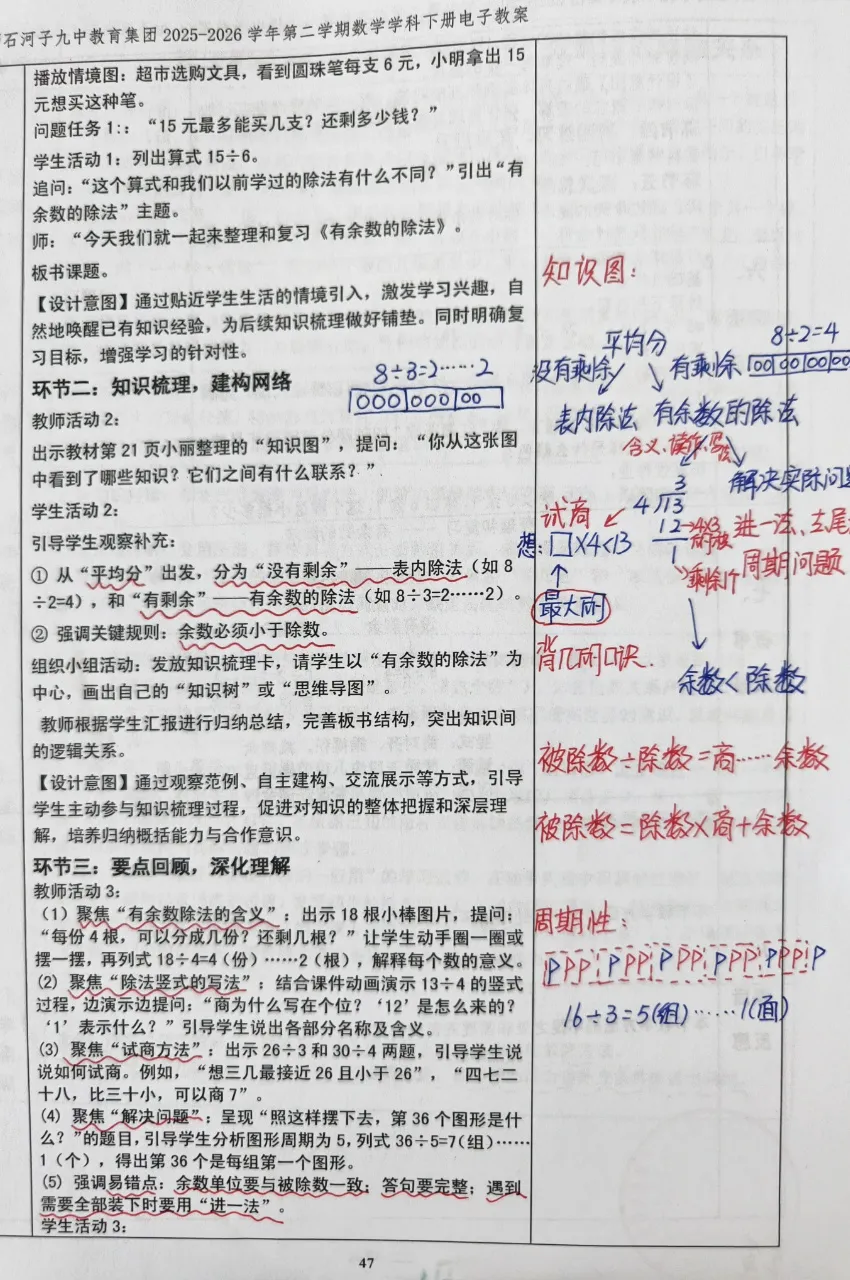 石河子九中教育集团 2025-2026 学年第二学期数学学科下册电子教案
播放情境图：超市选购文具，看到圆珠笔每支 6 元，小明拿出 15
元想买这种笔。
问题任务 1:：“15 元最多能买几支？还剩多少钱？”
学生活动 1：列出算式 15÷6。
追问：“这个算式和我们以前学过的除法有什么不同？”引出“有
余数的除法”主题。
师：“今天我们就一起来整理和复习《有余数的除法》。
板书课题。
【设计意图】通过贴近学生生活的情境引入，激发学习兴趣，自
然地唤醒已有知识经验，为后续知识梳理做好铺垫。同时明确复
习目标，增强学习的针对性。
环节二：知识梳理，建构网络
8÷3=2……2
教师活动 2：
出示教材第 21 页小丽整理的“知识图”，提问：“你从这张图
中看到了哪些知识？它们之间有什么联系？”
学生活动 2：
引导学生观察补充：
① 从“平均分”出发，分为“没有剩余”——表内除法（如 8
÷2=4），和“有剩余”——有余数的除法（如 8÷3=2……2）。
② 强调关键规则：余数必须小于除数。
组织小组活动：发放知识梳理卡，请学生以“有余数的除法”为
中心，画出自己的“知识树”或“思维导图”。
教师根据学生汇报进行归纳总结，完善板书结构，突出知识间
的逻辑关系。
【设计意图】通过观察范例、自主建构、交流展示等方式，引导
学生主动参与知识梳理过程，促进对知识的整体把握和深层理
解，培养归纳概括能力与合作意识。
环节三：要点回顾，深化理解
教师活动 3：
（1）聚焦“有余数除法的含义”：出示 18 根小棒图片，提问：
“每份 4 根，可以分成几份？还剩几根？”让学生动手圈一圈或
摆一摆，再列式 18÷4=4（份）……2（根），解释每个数的意义。
(2) 聚焦“除法竖式的写法”：结合课件动画演示 13÷4 的竖式
过程，边演示边提问：“商为什么写在个位？‘12’是怎么来的？
‘1’表示什么？”引导学生说出各部分名称及含义。
(3) 聚焦“试商方法”：出示 26÷3 和 30÷4 两题，引导学生说
说如何试商。例如，“想三几最接近 26 且小于 26”，“四七二
十八，比三十小，可以商 7”。
(4) 聚焦“解决问题”：呈现“照这样摆下去，第 36 个图形是什
么？”的题目，引导学生分析图形周期为 5，列式 36÷5=7(组)……
1（个），得出第 36 个是每组第一个图形。
(5) 强调易错点：余数单位要与被除数一致；答句要完整；遇到
需要全部装下时要用“进一法”。
学生活动 3：
知识图：
平均分
8÷2=4
没有剩余
有剩余
表内除法
有余数的除法
含义、读作、写
解决实际问
3
4 13
12
1
试商
想：□×4<13
最大为
进一法、去尾
剩余1个
周期问题
余数<除数
被除数÷除数=商……余数
被除数=除数×商+余数
周期性：
PPP PPP PPP PPP PPP P
16÷3=5(组)……1(面)
47